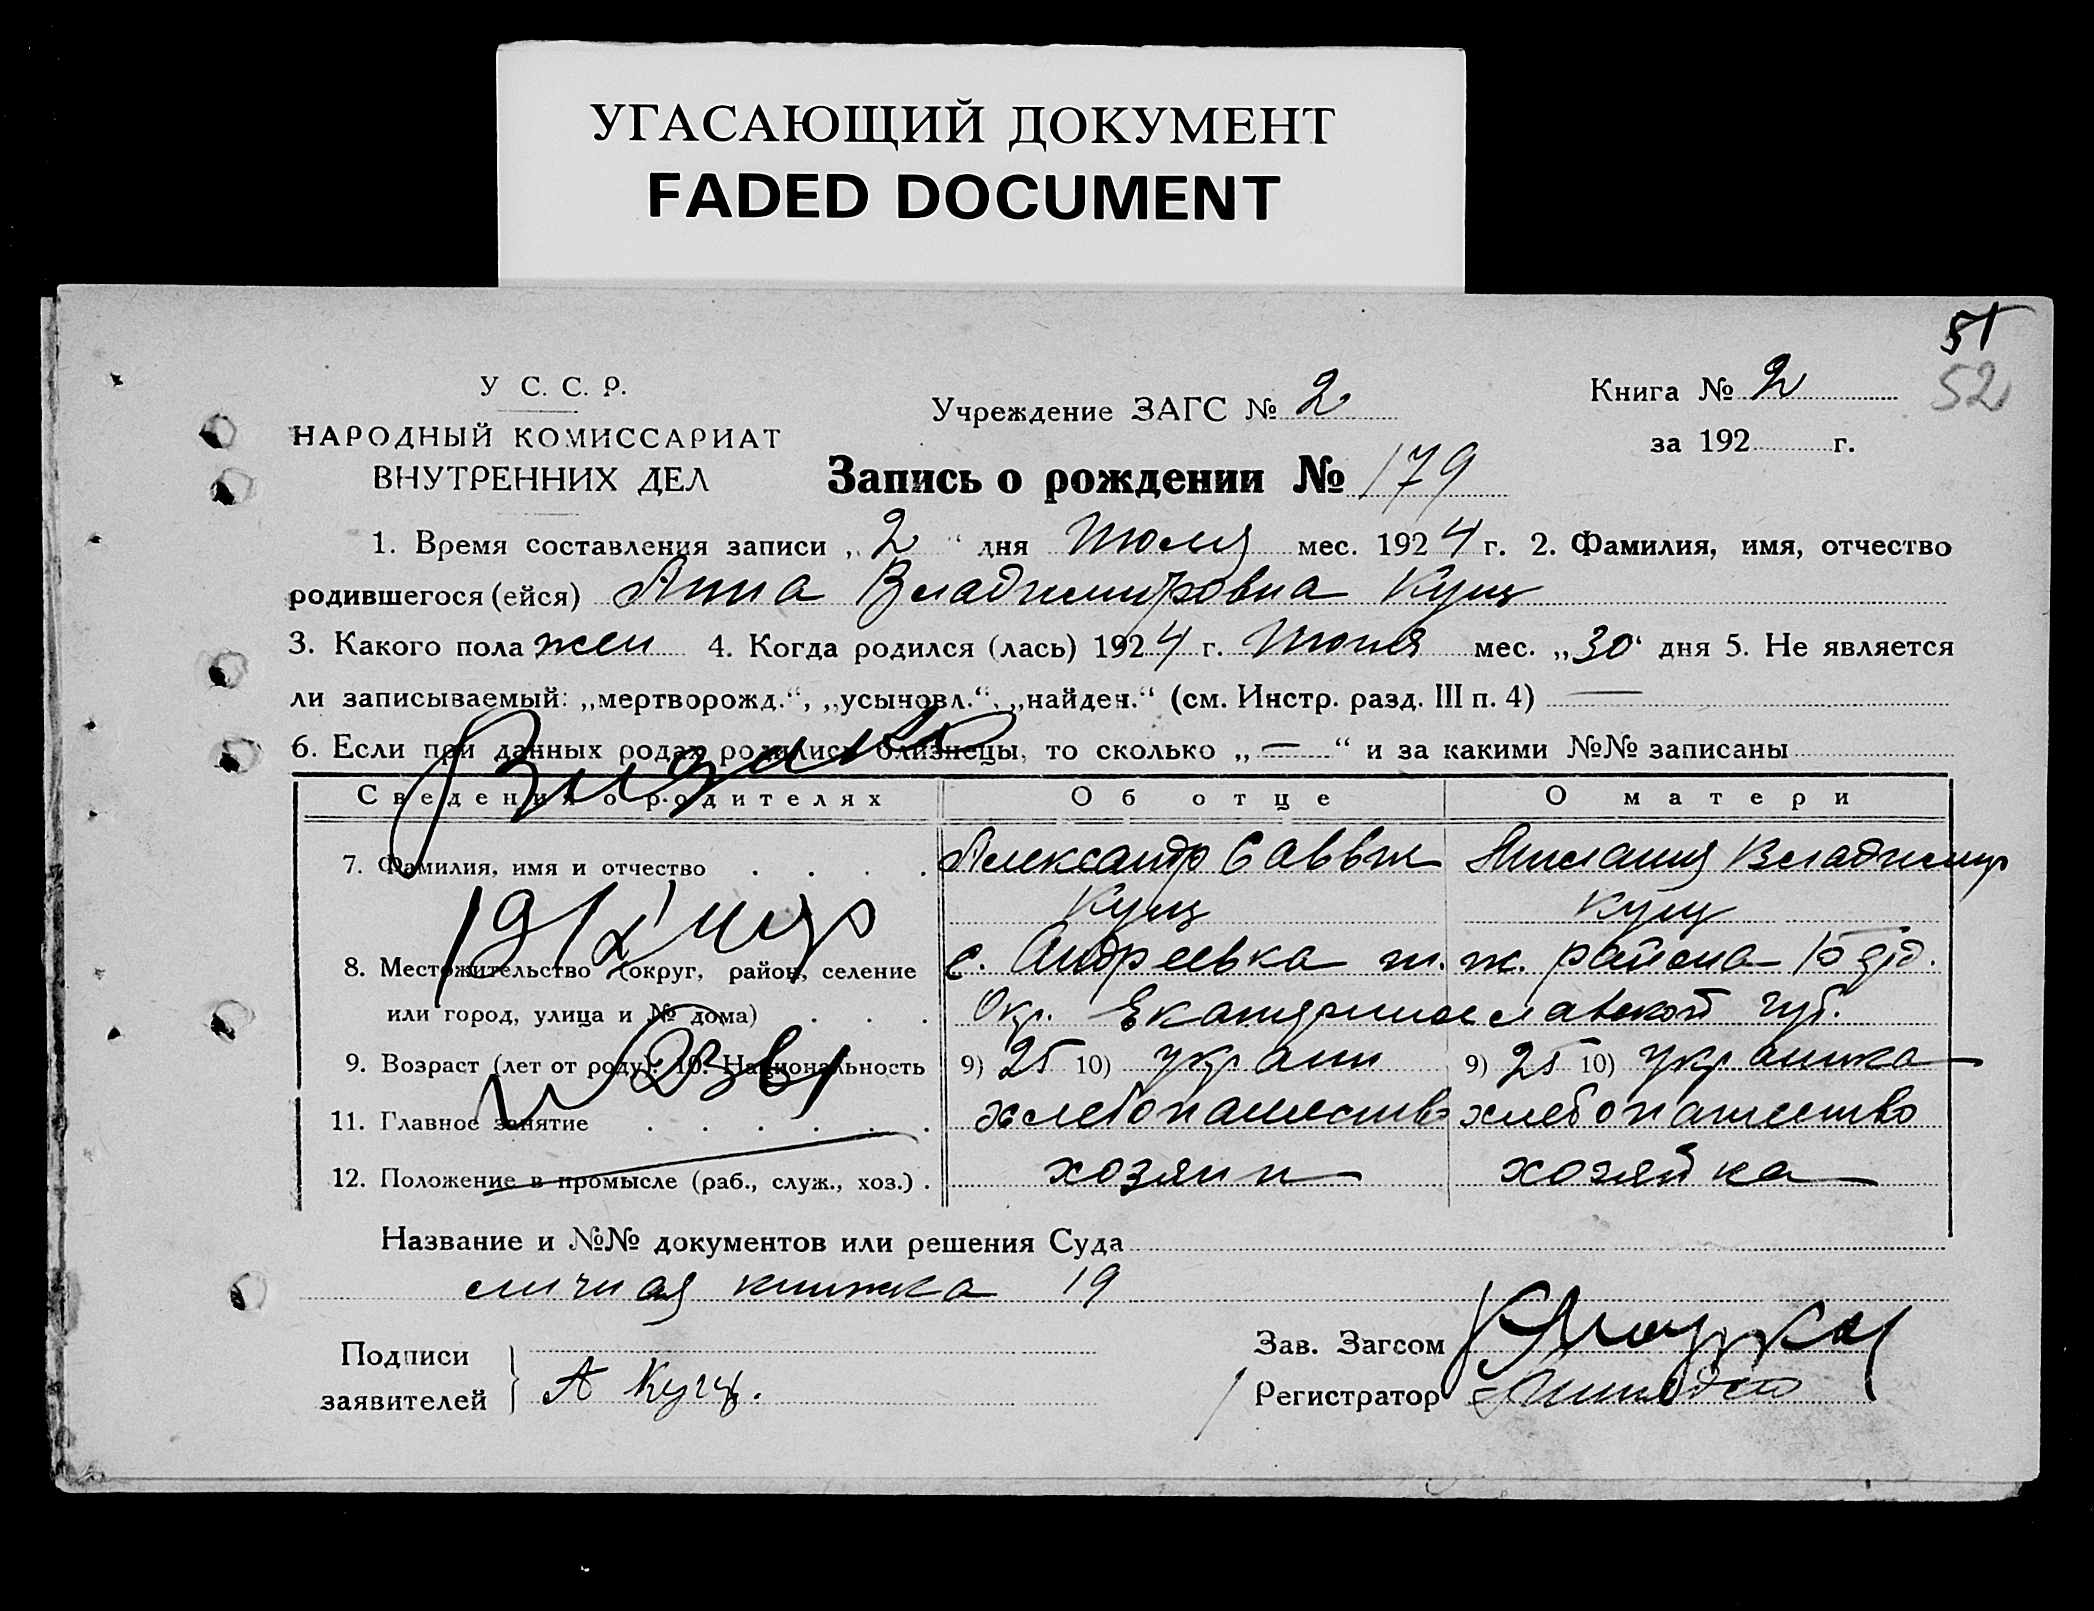 УГАСАЮЩИЙ ДОКУМЕНТ
FADED DOCUMENT
51
52
У С. С. Р.
НАРОДНЫЙ КОМИССАРИАТ
ВНУТРЕННИХ ДЕЛ
Учреждение ЗАГС № 2
Книга № 2
за 192 г.
Запись о рождении № 179
1. Время составления записи „ 2 “ дня Июля мес. 1924 г. 2. Фамилия, имя, отчество
родившегося (ейся) Анна Владимировна Кущ
3. Какого пола жен 4. Когда родился (лась) 1924 г. Июня мес. „30“ дня 5. Не является
ли записываемый: „мертворожд.“, „усыновл.“, „найден.“ (см. Инстр. разд. III п. 4) —
6. Если при данных родах родились близнецы, то сколько „ — “ и за какими №№ записаны
Сведения о родителях Об отце О матери
7. Фамилия, имя и отчество Александр Саввин Владимир
Кущ Кущ
8. Местожительство (округ, район, селение с. Андреевка т. ж. района
или город, улица и № дома) Окр. Екатеринославской губ.
9. Возраст (лет от роду). 10. Национальность 9) 25 10) украин 9) 25 10) украинка
11. Главное занятие хлебопашество хлебопашество
12. Положение в промысле (раб., служ., хоз.) хозяин хозяйка
Название и №№ документов или решения Суда
личная книжка 19
Подписи
заявителей А Кущ.
Зав. Загсом
Регистратор